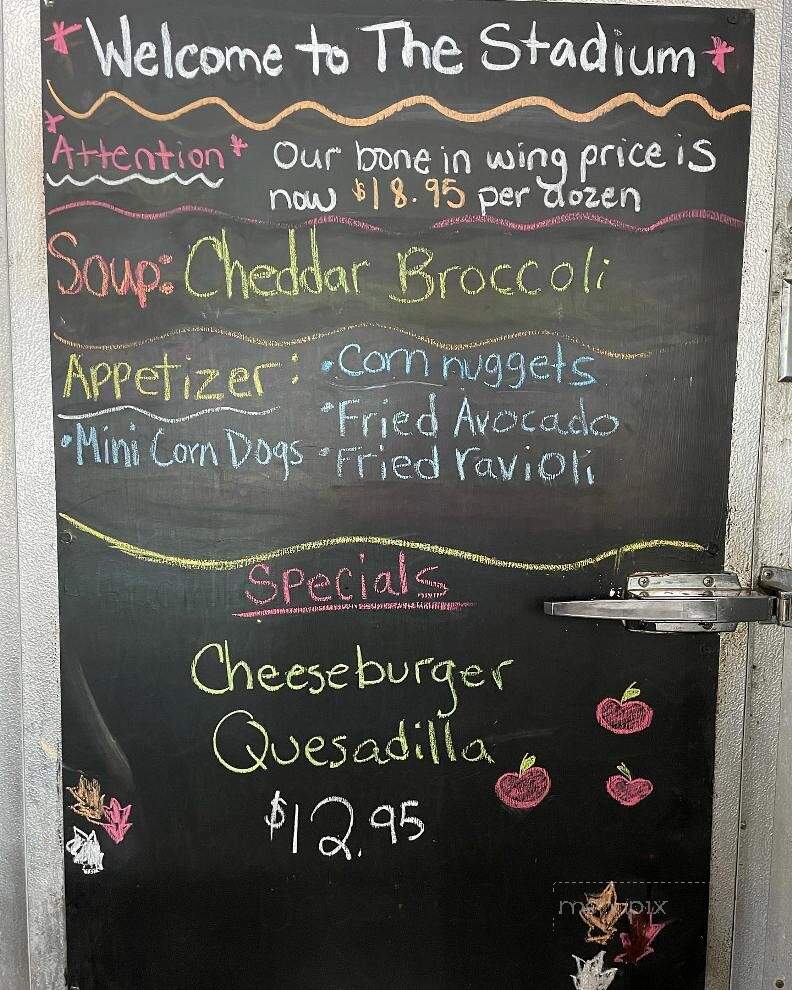 Welcome to The Stadium
Attention* Our bone in wing price is
now $18.95 per dozen
Soup: Cheddar Broccoli
Appetizer:
• Mini Corn Dogs
• Corn nuggets
• Fried Avocado
• Fried ravioli
Specials
Cheeseburger
Quesadilla
$12.95
menupix